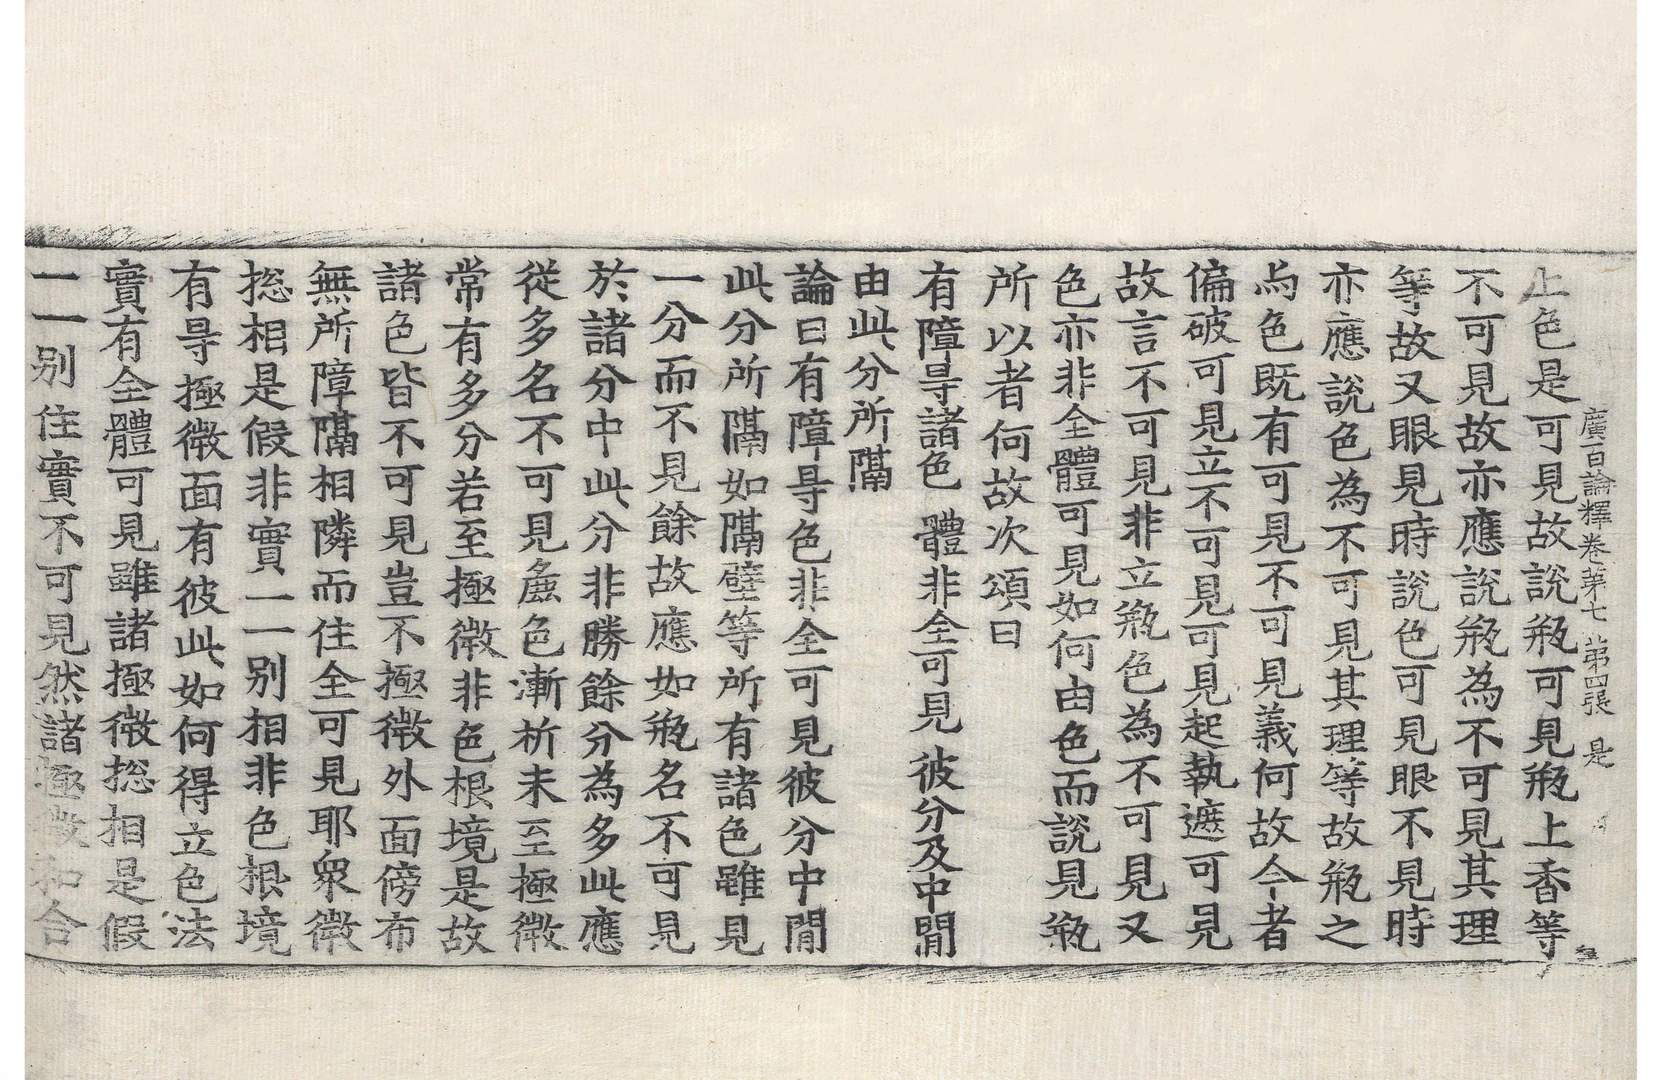 廣百論釋卷第七 第四張 是
上色是可見故說瓶可見瓶上香等
不可見故亦應說瓶為不可見其理
等故又眼見時說色可見眼不見時
亦應說色為不可見其理等故瓶之
與色既有可見不可見義何故今者
偏破可見立不可見可見起執遮可見
故言不可見非立瓶色為不可見又
色亦非全體可見如何由色而說見瓶
所以者何故次頌曰
有障㝵諸色 體非全可見 彼分及中閒
由此分所隔
論曰有障㝵色非全可見彼分中閒
此分所隔如隔壁等所有諸色雖見
一分而不見餘故應如瓶名不可見
於諸分中此分非勝餘分為多此應
從多名不可見麁色漸析未至極微
常有多分若至極微非色根境是故
諸色皆不可見豈不極微外面傍布
無所障隔相隣而住全可見耶衆微
捴相是假非實一一別相非色根境
有㝵極微面有彼此如何得立色法
實有全體可見雖諸極微捴相是假
一一別住實不可見然諸極微和合